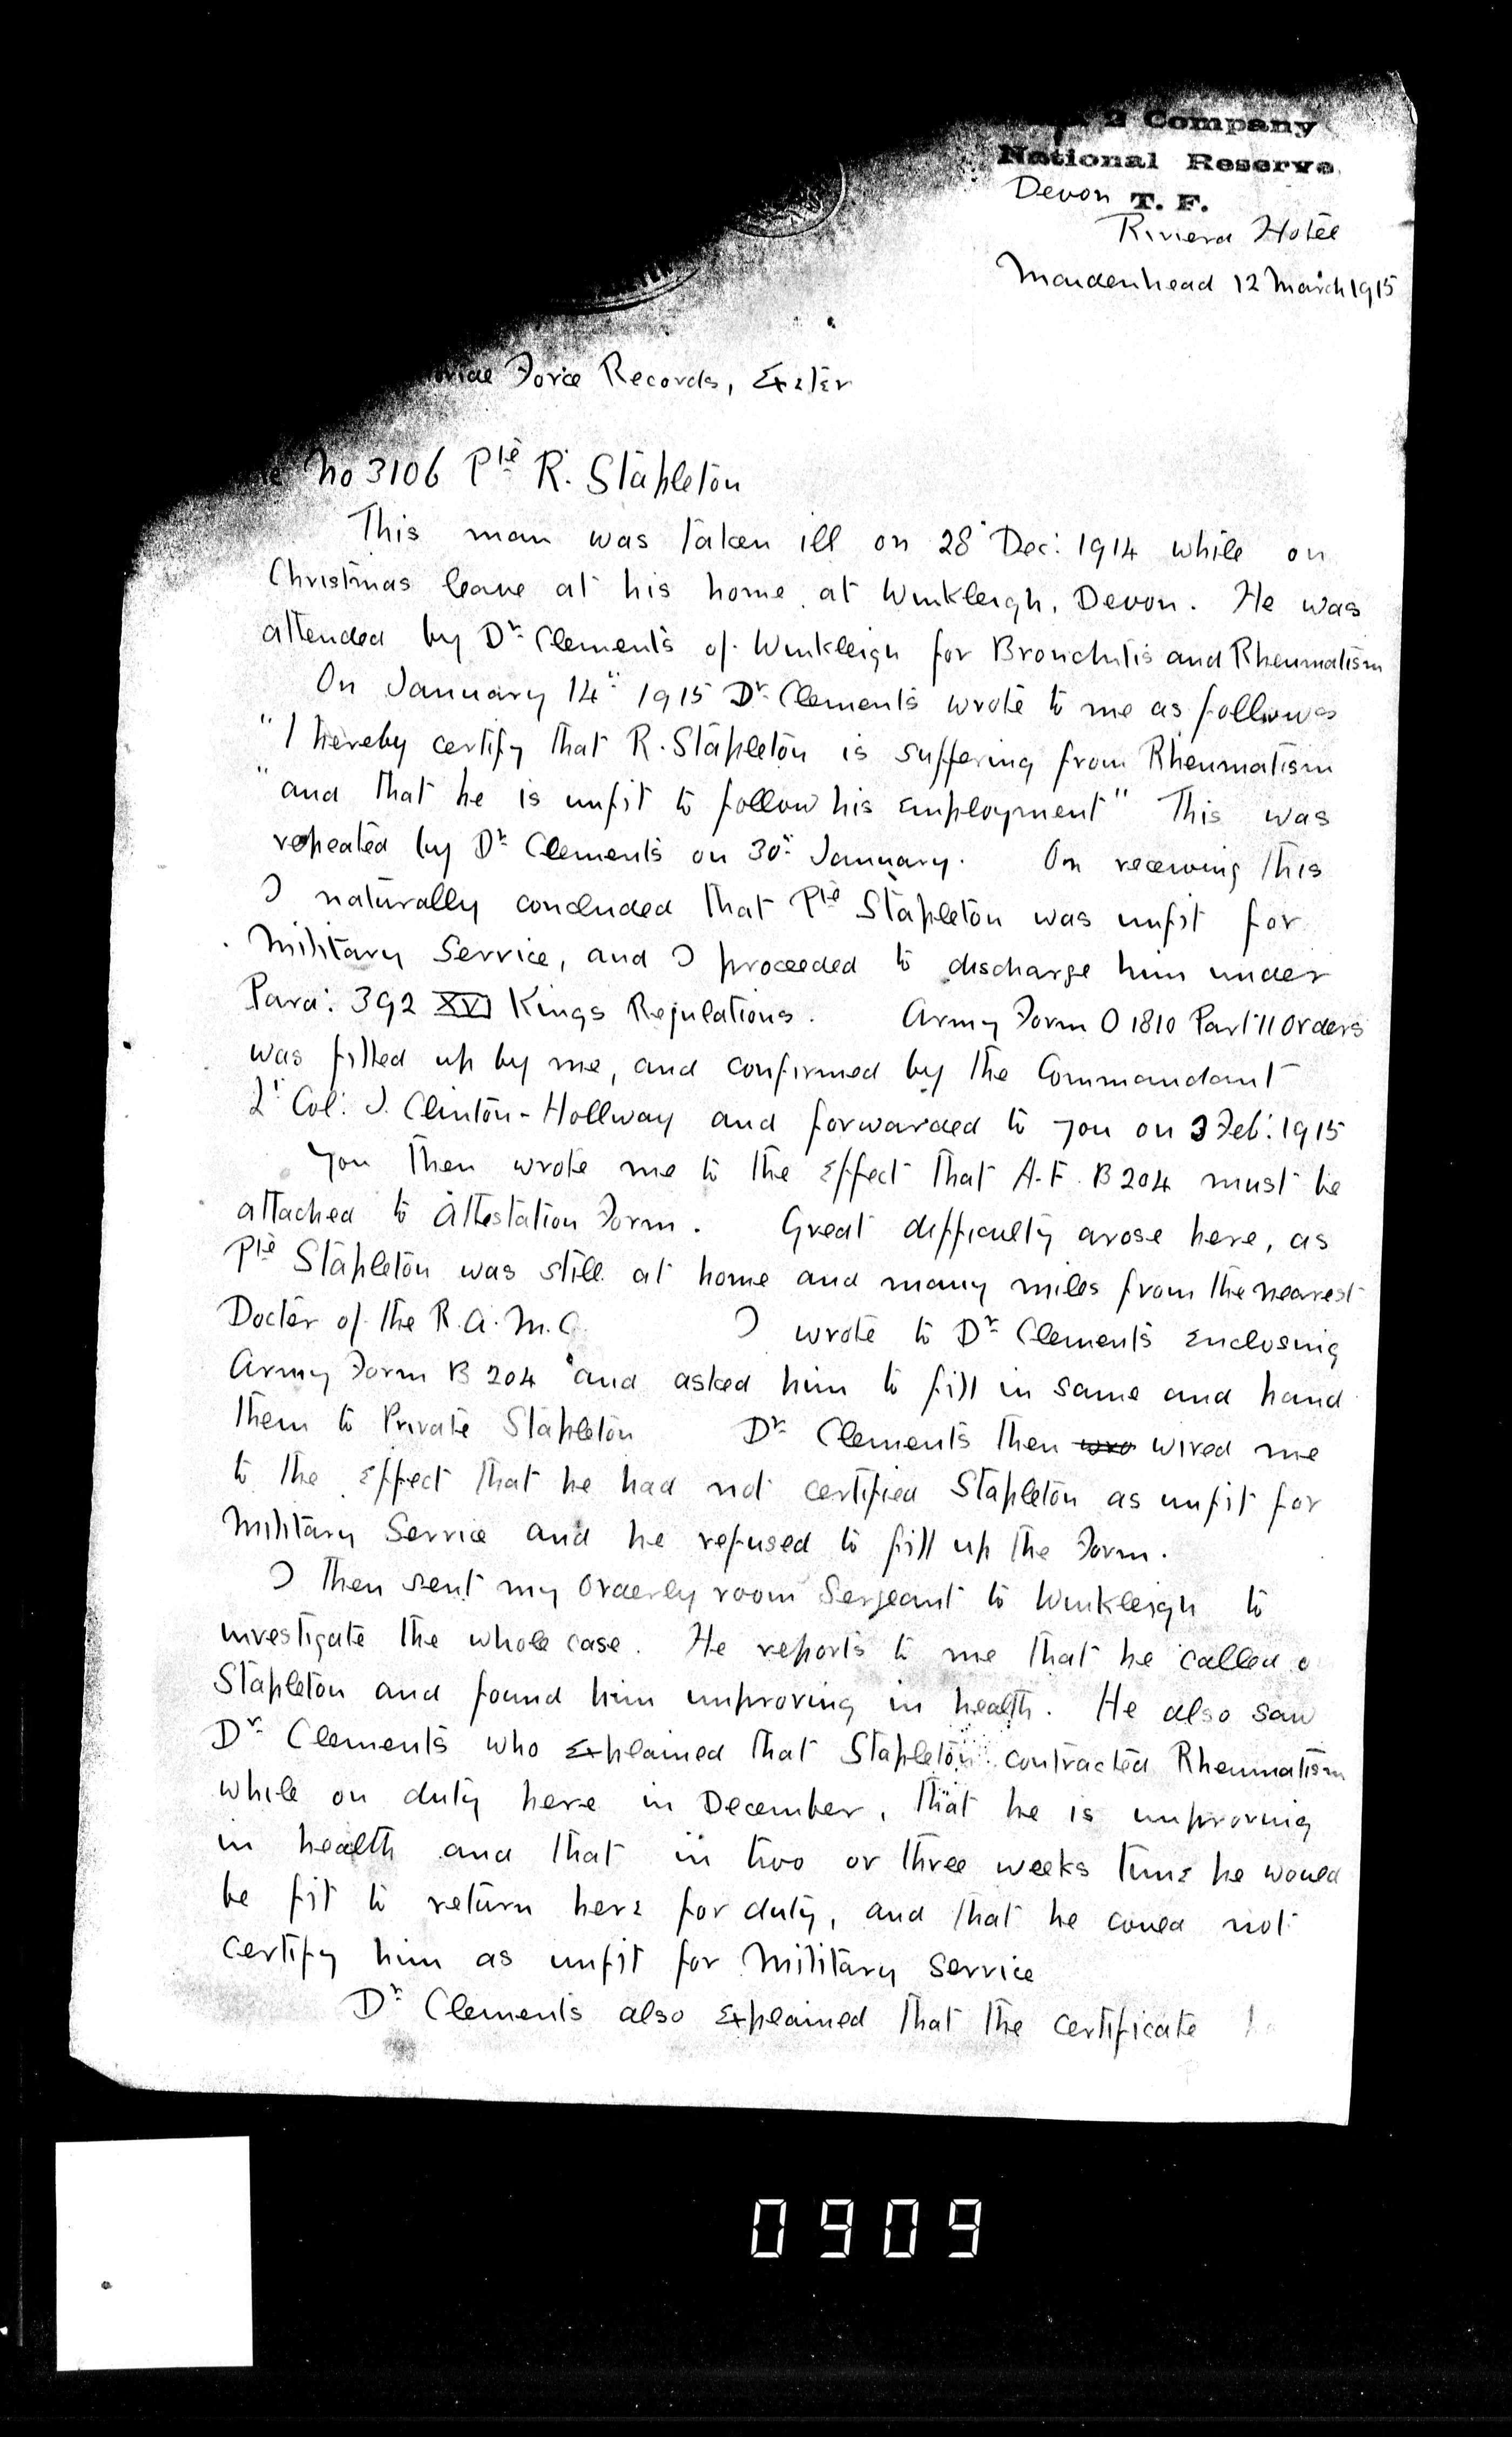 2 Company
National Reserve
Devon T. F.
Riviera Hotel
Maidenhead 12 March 1915
Force Records, Exeter
No 3106 Pte R. Stapleton
This man was taken ill on 28 Dec: 1914 while on
Christmas leave at his home at Winkleigh, Devon. He was
attended by Dr Clements of Winkleigh for Bronchitis and Rheumatism
On January 14th 1915 Dr Clements wrote to me as follows
"I hereby certify that R. Stapleton is suffering from Rheumatism
"and that he is unfit to follow his employment" This was
repeated by Dr Clements on 30th January. On receiving this
I naturally concluded that Pte Stapleton was unfit for
Military Service, and I proceeded to discharge him under
Para: 392 XVI Kings Regulations. Army Form O 1810 Part II Orders
was filled up by me, and confirmed by the Commandant
Lt Col: J. Clinton-Hollway and forwarded to you on 3 Feb: 1915
You then wrote me to the effect that A.F. B 204 must be
attached to Attestation Form. Great difficulty arose here, as
Pte Stapleton was still at home and many miles from the nearest
Docter of the R.A.M.C. I wrote to Dr Clements enclosing
Army Form B 204 and asked him to fill in same and hand
them to Private Stapleton Dr Clements then wro wired me
to the effect that he had not certified Stapleton as unfit for
Military Service and he refused to fill up the Form.
I then sent my Orderly room Sergeant to Winkleigh to
investigate the whole case. He reports to me that he called o
Stapleton and found him improving in health. He also saw
Dr Clements who explained that Stapleton contracted Rheumatism
while on duty here in December, that he is improving
in health and that in two or three weeks time he would
be fit to return here for duty, and that he could not
certify him as unfit for Military Service
Dr Clements also explained that the certificate
0909